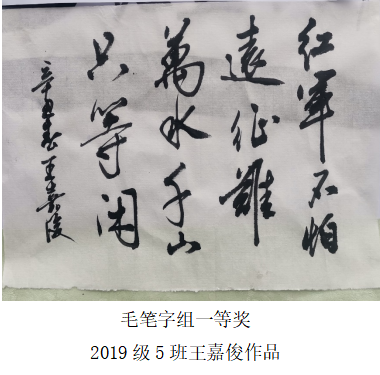 红軍不怕
遠征難
萬水千山
只等闲
辛丑春王嘉俊
毛笔字组一等奖
2019 级 5 班王嘉俊作品